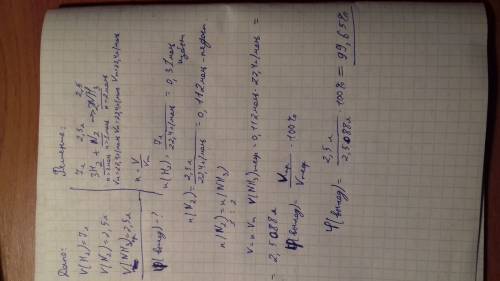 Дано:
V(H2)=7л
V(N2)=2,5л
V(NH3)пр=2,5л
φ(выход)=?
Решение:
7л 2,5л 2,5
3H2 + N2 → 2NH3
n=3моль n=1моль n=2моль
Vm=22,4л/моль Vm=22,4л/моль Vm=22,4л/моль
n = V/Vm
n(H2)= 7л / 22,4л/моль = 0,31моль избыт
n(N2)= 2,5л / 22,4л/моль = 0,112моль - недост
n(N2) = n(NH3)
1 : 2
V=n·Vm V(NH3)теор=0,112моль·22,4л/моль =
= 2,5088л
φ(выход)= Vпр. / Vтеор. · 100%
φ(выход)= 2,5л / 2,5088л · 100% = 99,65%